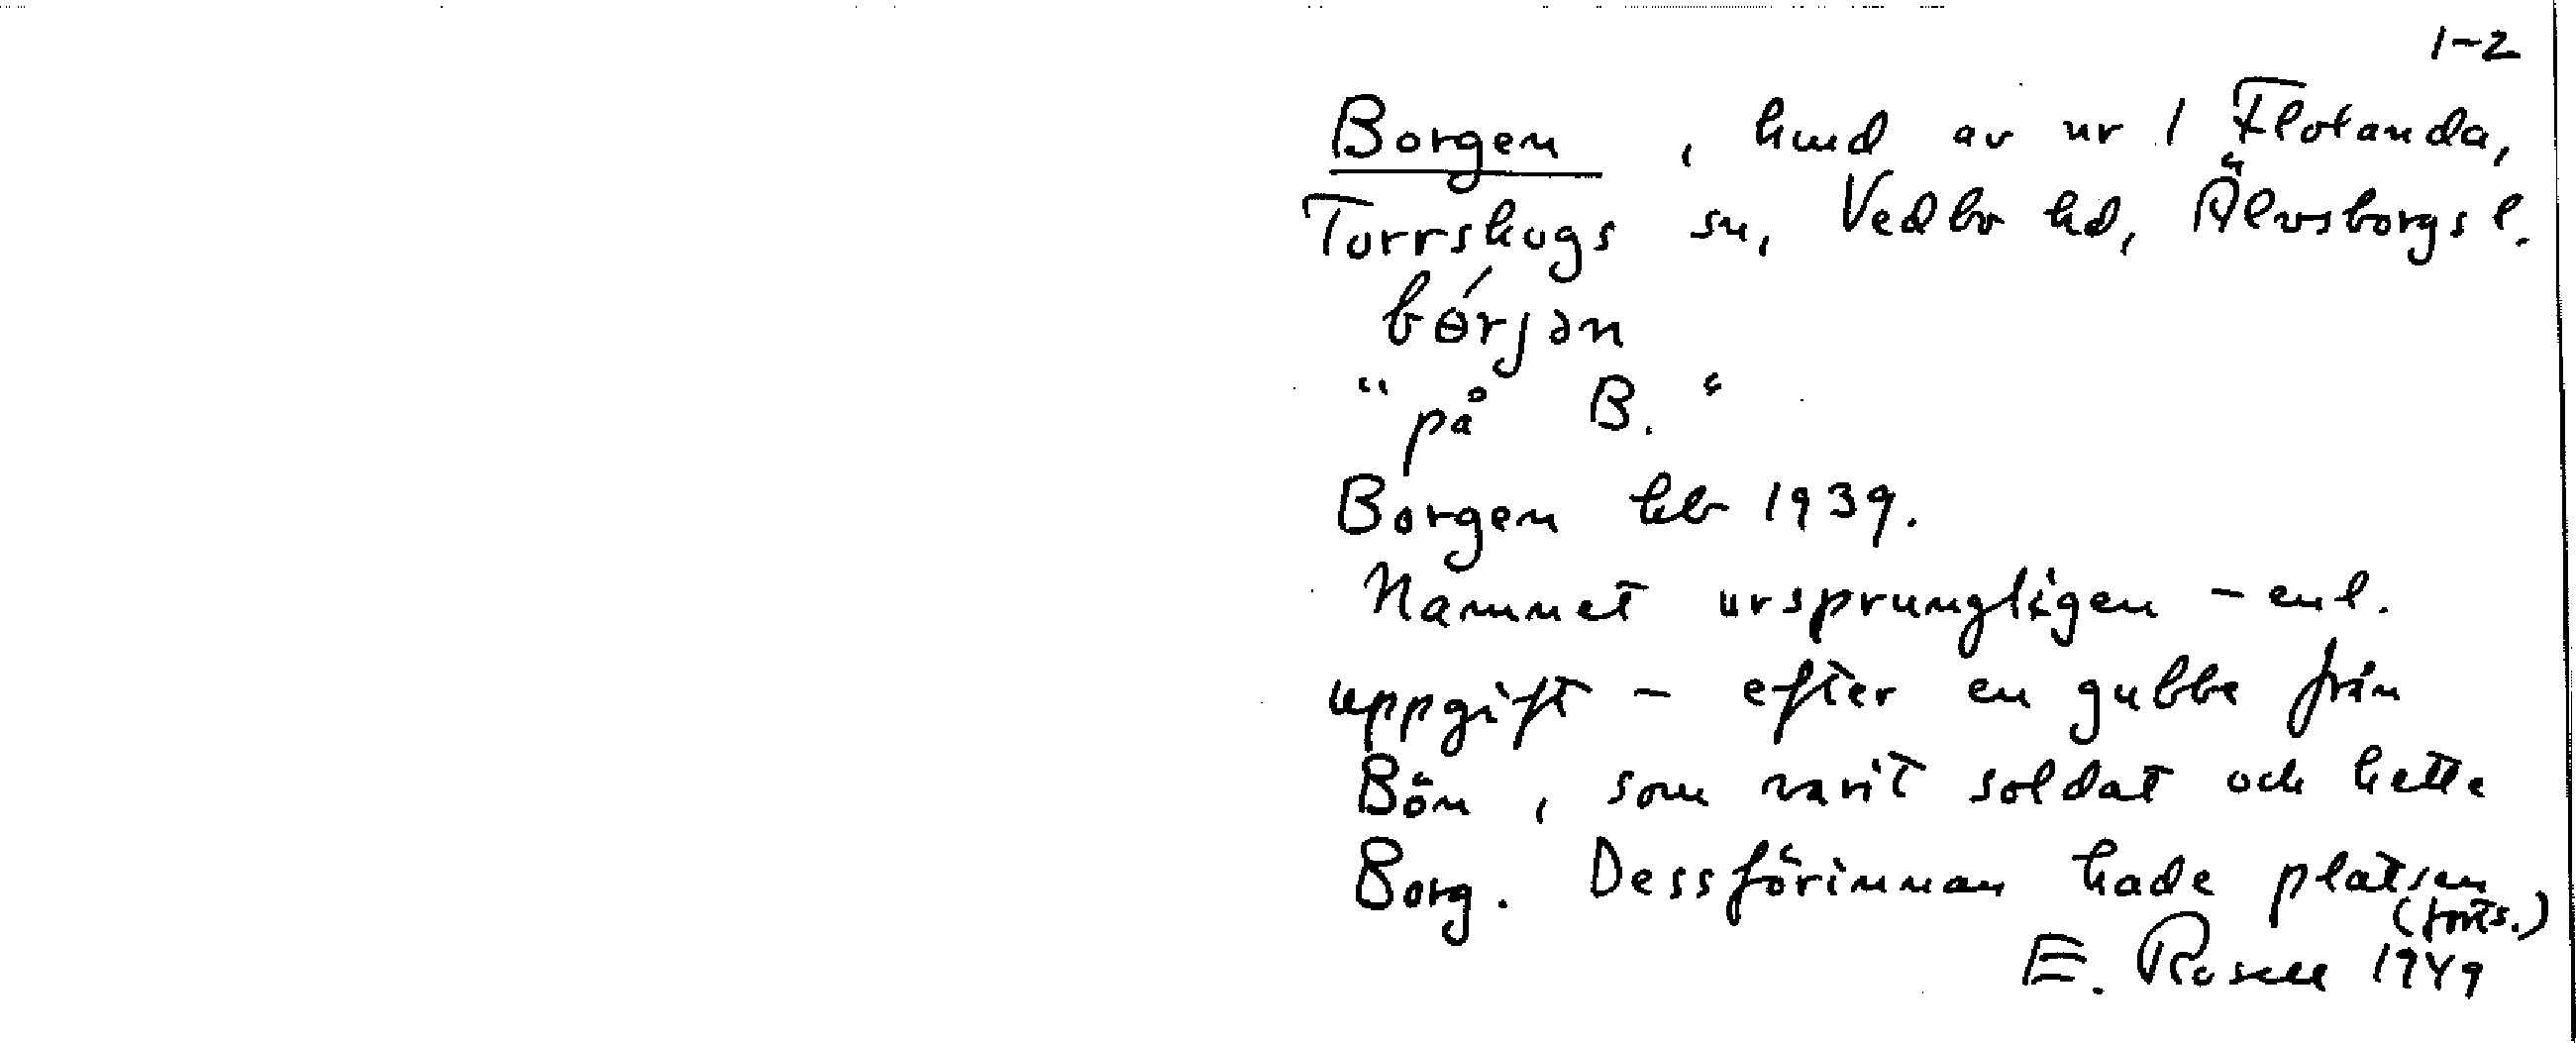 1-2
Borgen , hmd av nr 1 Flotanda,
Torrskogs sn, Vedbo hd, Älvsborgs l.
bɵ́rjən
"på B."
Borgen kb 1939.
Namnet ursprungligen - enl.
uppgift - efter en gubbe från
Bön , som varit soldat och hette
Borg. Dessförinnan hade platsen
(forts.)
E. Rosell 1949